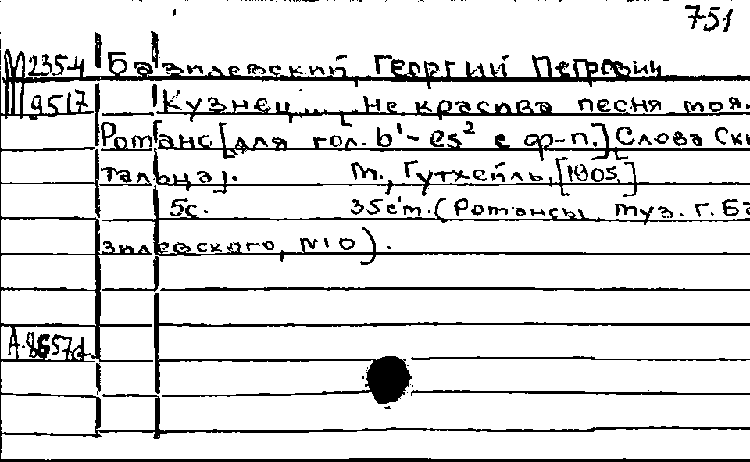 751
М235-4 Базилевский, Георгий Петрович
9517 Кузнец... [Не красива песня моя.
Романс [для гол. b¹-es² с ф-п.] Слова Ски
тальца]. М., Гутхейль, [1905.]
5с. 35см. (Романсы муз. Г. Ба
зилевского, №10).
А.8657d.